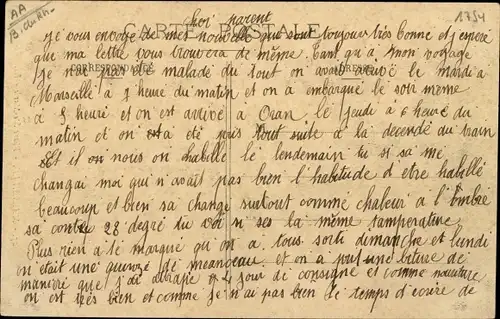 AA
1754
CARTE POSTALE
CORRESPONDANCE
ADRESSE
Cher parent
je vous envoye de mes nouvelle qui sont toujours très bonne et j espère
que ma lettre vous trouvera de même. Tant qu'a mon voyage
je n'ai pas été malade du tout on avait arrivé le mardi a
Marseille a 5 heure du matin et on a embarqué le soir meme
a 5 heure et on est arrivé a Oran le jeudi a 6 heure du
matin et on a été pris tout suite a la decendé du train
Et il on nous on habillé le lendemain tu si sa me
changai moi qui n'avait pas bien l'habitude d etre habillé
beaucoup et bien sa change surtout comme chaleur a l'ombre
sa conte 28 degré tu voi n ses la même tamperature
Plus rien a te marqué qu on a tous sorti dimanche et lundi
on était une quinze de meanceau et on a prit une biture de
maniere que j'ai atrapé 4 jour de consigne et comme nouriture
on est très bien et comme je n'ai pas bien le temps d'ecrire de